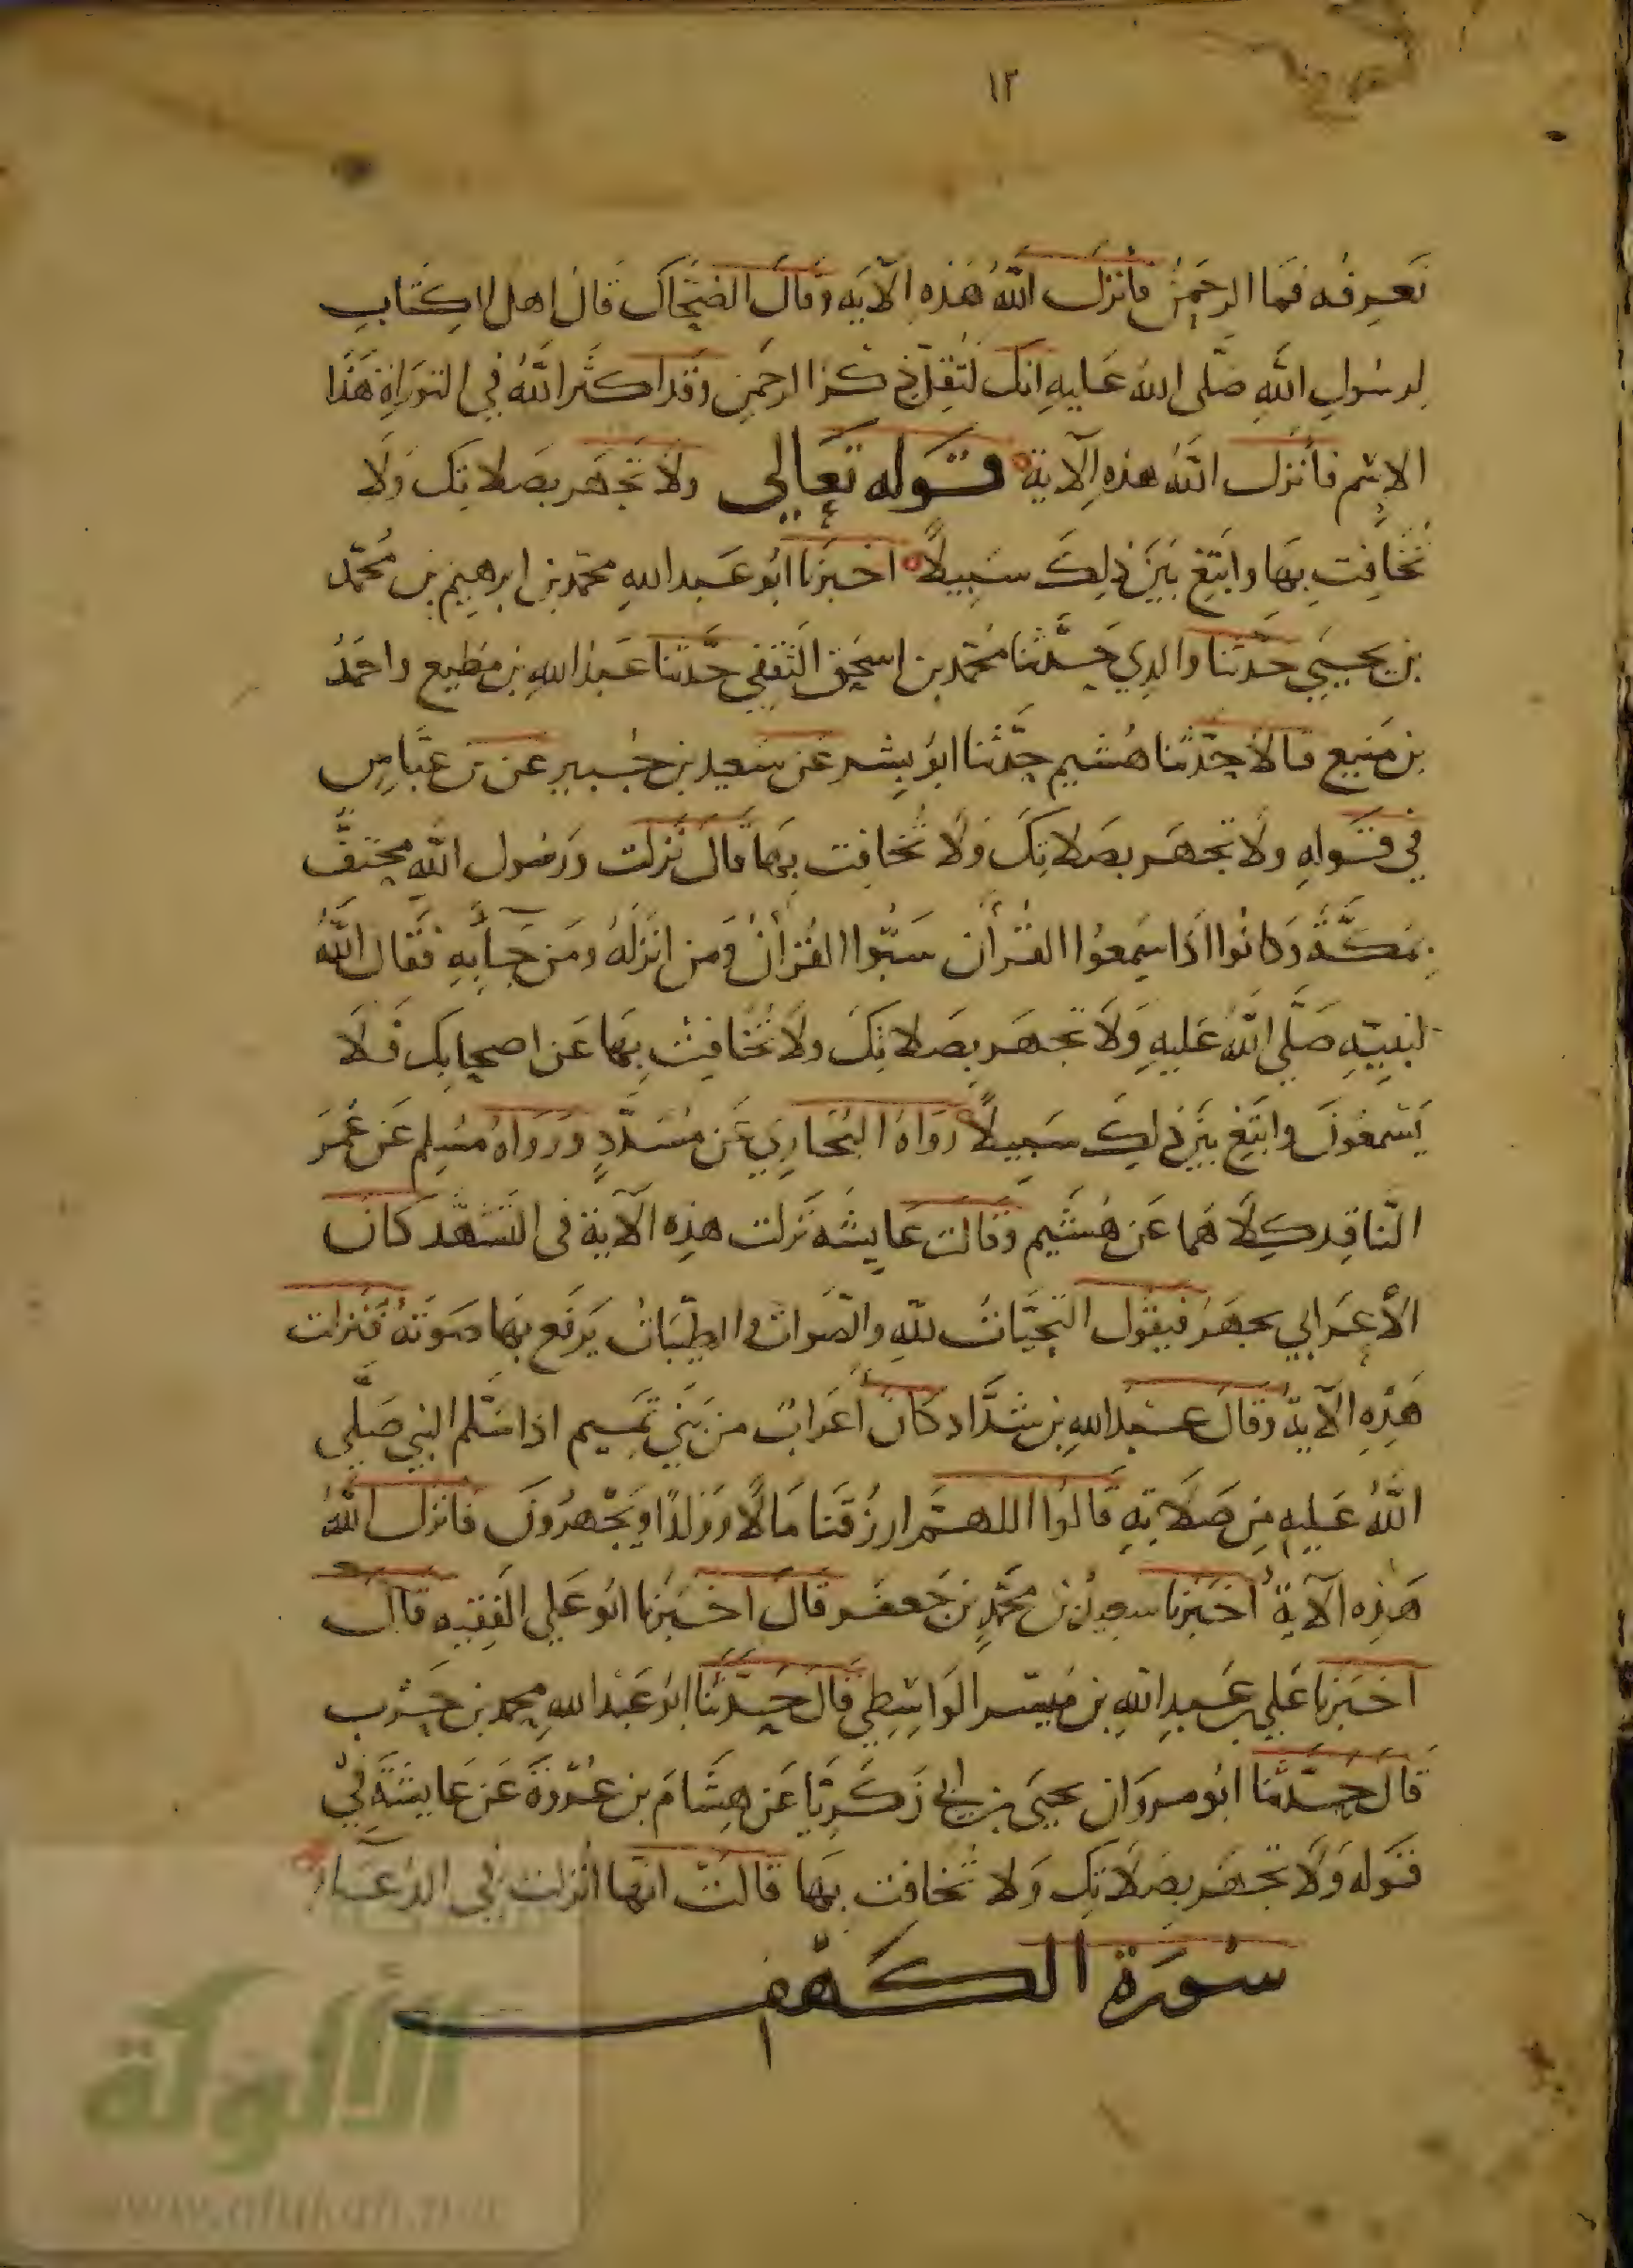 ١٢
نعرفه فما الرحمن فأنزل الله هذه الآيه وقال الضحاك قال اهل الكتاب
لرسول الله صلى الله عليه انك لتقل ذكر الرحمن وقد اكثر الله في التوراة هذا
الاسم فأنزل الله هذه الآية قوله تعالى ولا تجهر بصلاتك ولا
تخافت بها وابتغ بين ذلك سبيلاً اخبرنا ابو عبد الله محمد بن ابرهيم بن محمد
بن يحيى حدثنا والدي حدثنا محمد بن اسحق الثقفي حدثنا عبد الله بن مطيع واحمد
بن منيع قالا حدثنا هشيم حدثنا ابو بشر عن سعيد بن جبير عن بن عباس
في قوله ولا تجهر بصلاتك ولا تخافت بها قال نزلت ورسول الله مختف
بمكة وكانوا اذا سمعوا القرأن سبوا القرأن ومن انزله ومن جاء به فقال الله
لنبيه صلى الله عليه ولا تجهر بصلاتك ولا تخافت بها عن اصحابك فلا
يسمعون وابتغ بين ذلك سبيلاً رواه البخاري عن مسدد ورواه مسلم عن عمر
الناقد كلاهما عن هشيم وقالت عايشة نزلت هذه الآية في التشهد كان
الأعرابي يجهر فيقول التحيات لله والصوات والطيبات يرفع بها صوته فنزلت
هذه الآية وقال عبد الله بن شداد كان أعراب من بني تميم اذا سلم النبي صلى
الله عليه من صلاته قالوا اللهم ارزقنا مالا وولدا ويجهرون فانزل الله
هذه الآية أخبرنا سعيد بن محمد بن جعفر قال اخبرنا ابو علي الفقيه قال
اخبرنا علي بن عبد الله بن مبشر الواسطي قال حدثنا ابو عبد الله محمد بن حرب
قال حدثنا ابو مروان يحيى بن ابي زكريا عن هشام بن عروة عن عايشة في
قوله ولا تجهر بصلاتك ولا تخافت بها قالت انها انزلت في الدعاء
سورة الكهف
الألوكة
www.alukah.net